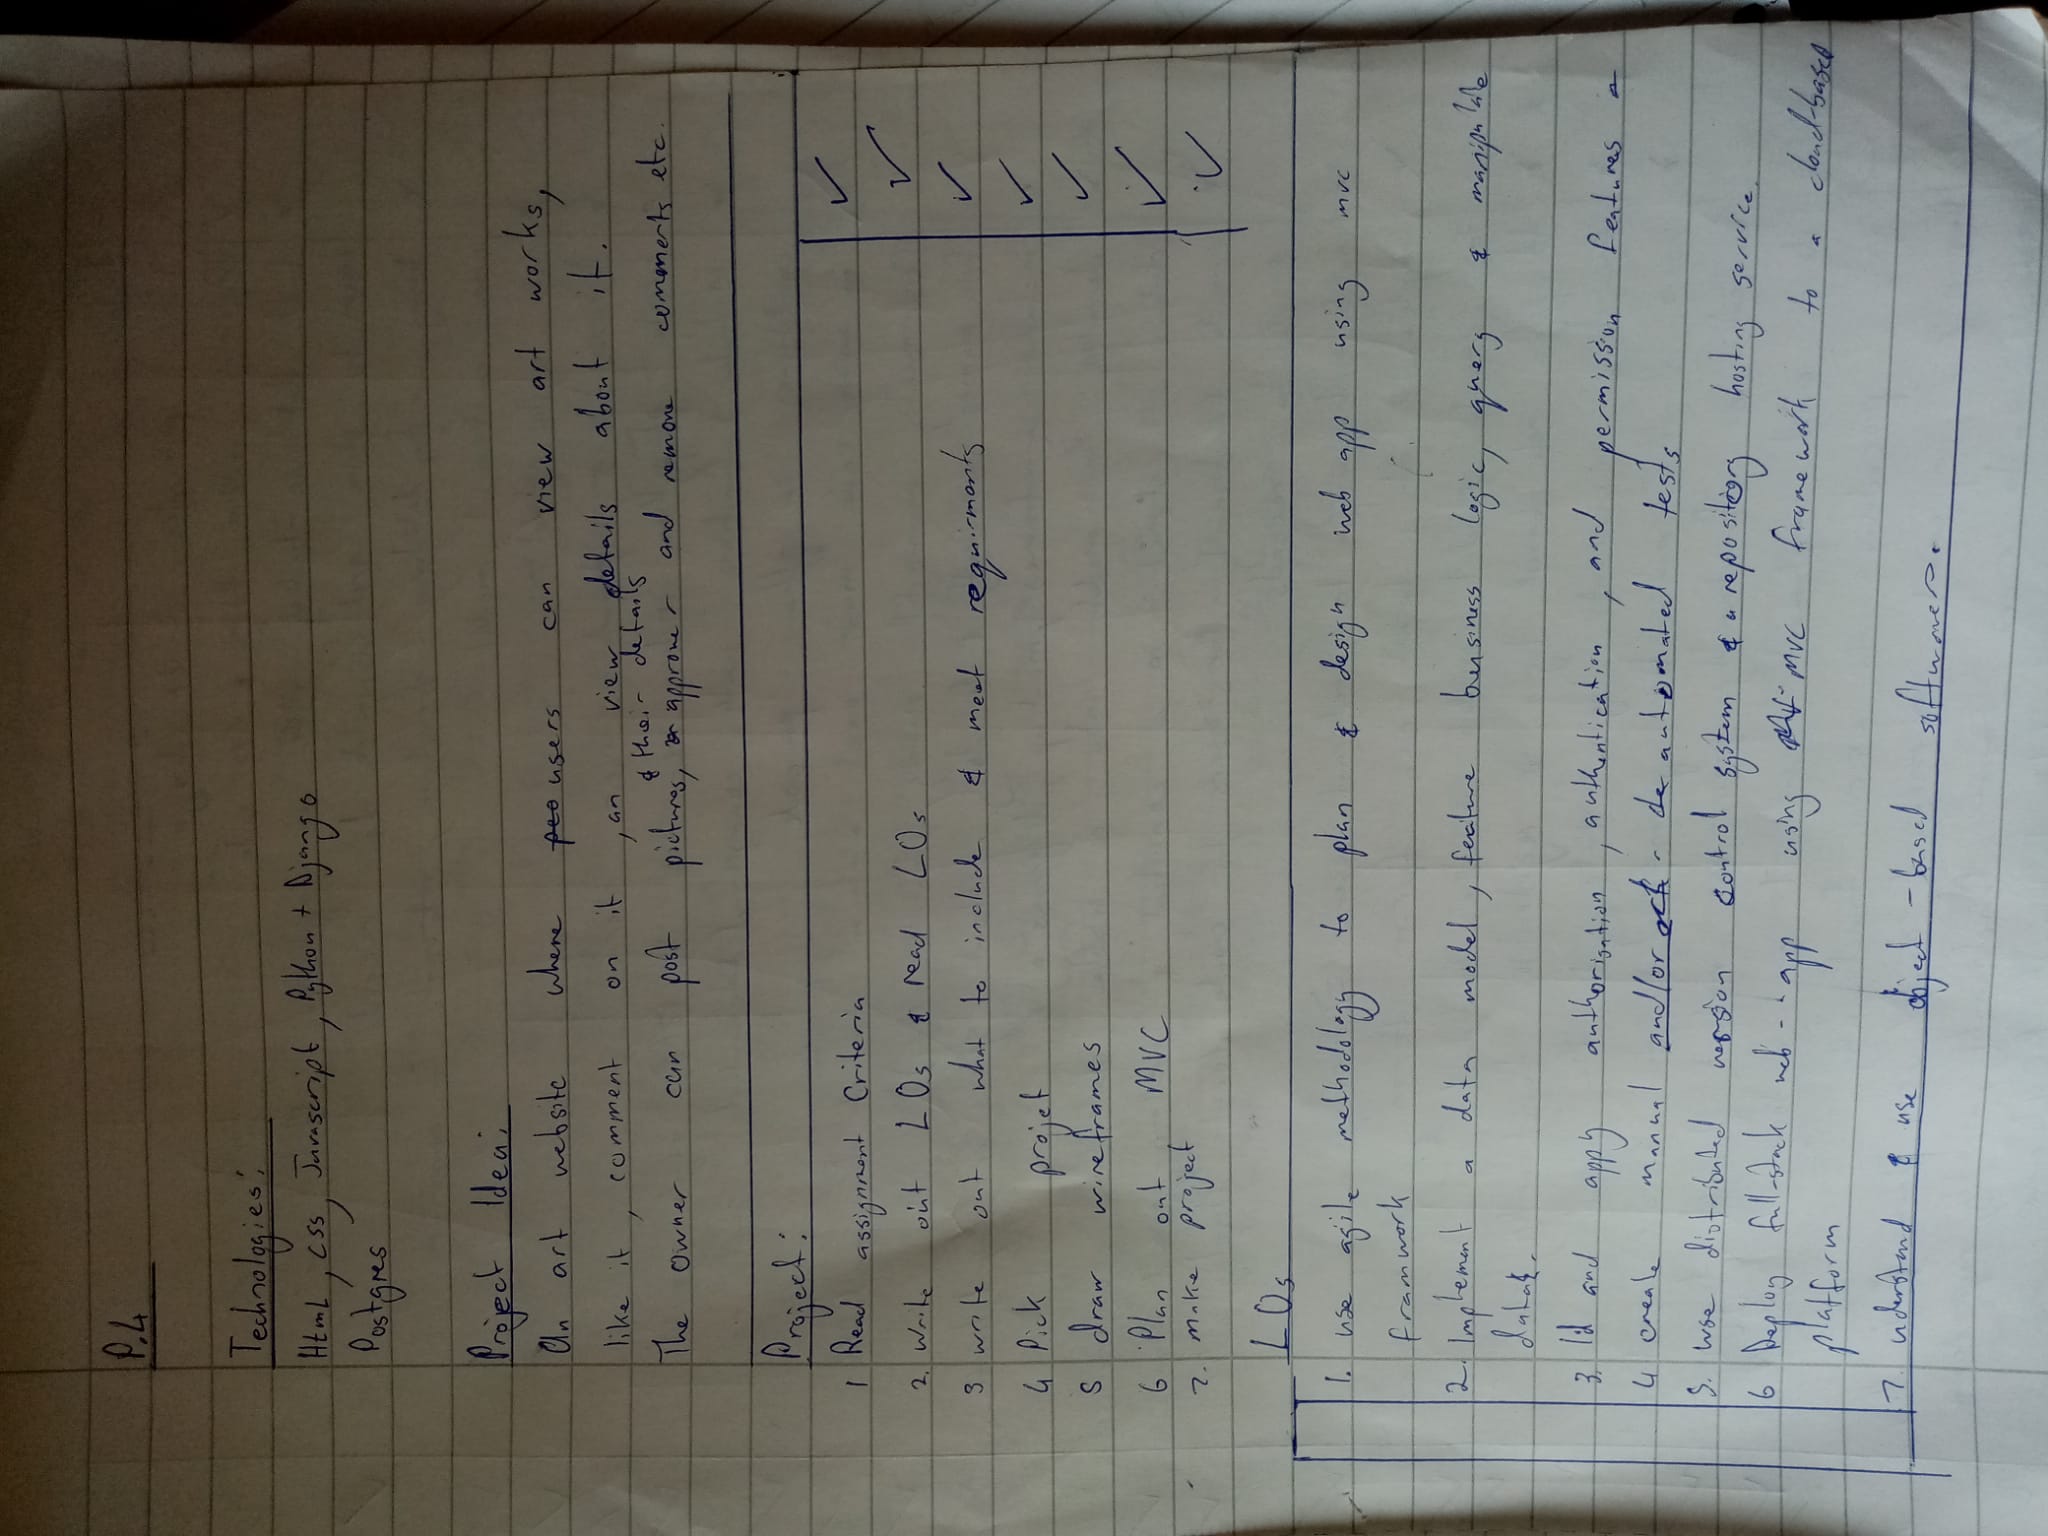 P.4
Technologies:
Html, CSS, Javascript, Python + Django
Postgres
Project Idea:
An art website where users can view art works,
like it, comment on it, an view details about it.
& their details
The owner can post pictures, approver and remove comments etc.
Project:
1 Read assignment Criteria ✓
2. write out LOs & read LOs ✓
3 write out what to include & meet requirments ✓
4 Pick projet ✓
5 draw wireframes ✓
6 Plan out MVC ✓
7. make project ✓
LOs
1. use agile methodology to plan & design web app using mvc
framwork
2. Implement a data model, feature business logic, query & manipulate
data.
3. Id and appy authorisation, authentication, and permission features
4 create manual and/or automated tests
5. use distributed version control system & a repository hosting service
6 Deploy full-stack web-app using MVC framework to a cloud-based
platform
7. understand & use object-based software.